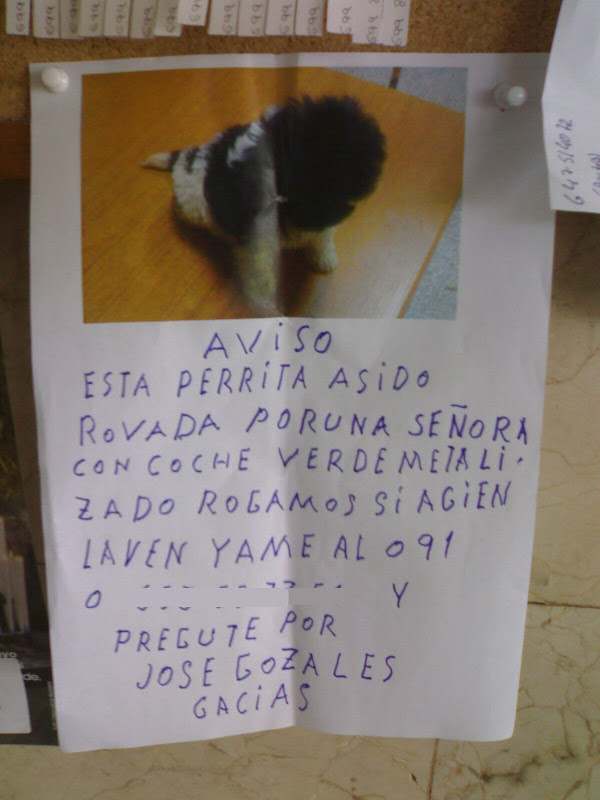 699 699 699 699 699 699 699 699 8 699 8
AViSO
ESTA PERRiTA ASiDO
ROVADA PORUNA SEÑORA
CON COCHE VERDEMETALI.
ZADO ROGAMOS Si AGiEN
LAVEN YAME AL 091
O Y
PREGUTE POR
JOSE GOZALES
GACiAS